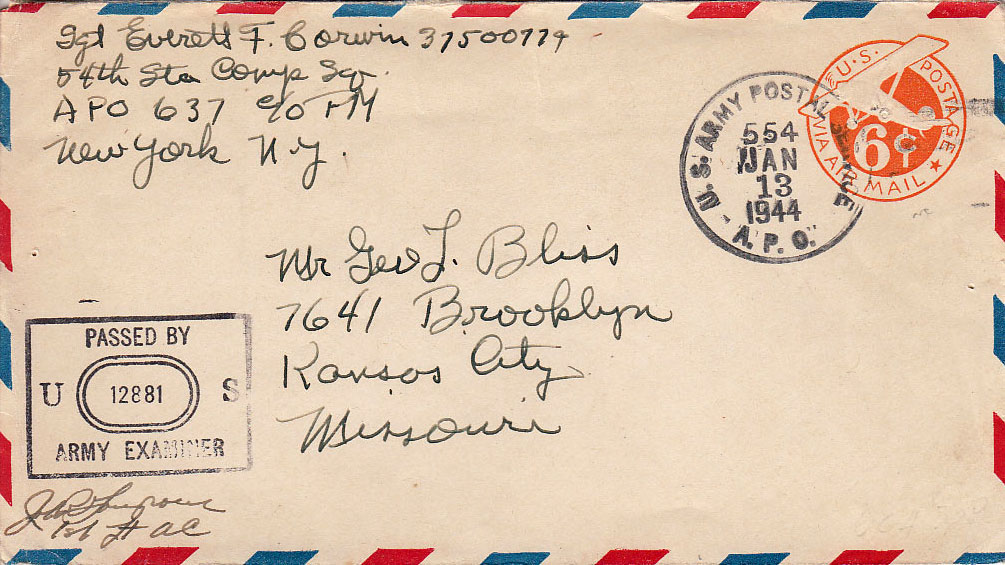 Sgt Everett F. Corwin 37500774
54th Sta Comp Sq.
APO 637 c/o PM
New York N.Y.
U.S. POSTAGE
VIA AIR MAIL
6¢
U.S. ARMY POSTAL SERVICE
554
JAN
13
1944
A.P.O.
Mr Geo L. Bliss
7641 Brooklyn
Kansas City
Missouri
PASSED BY
U 12881 S
ARMY EXAMINER
1st Lt AC